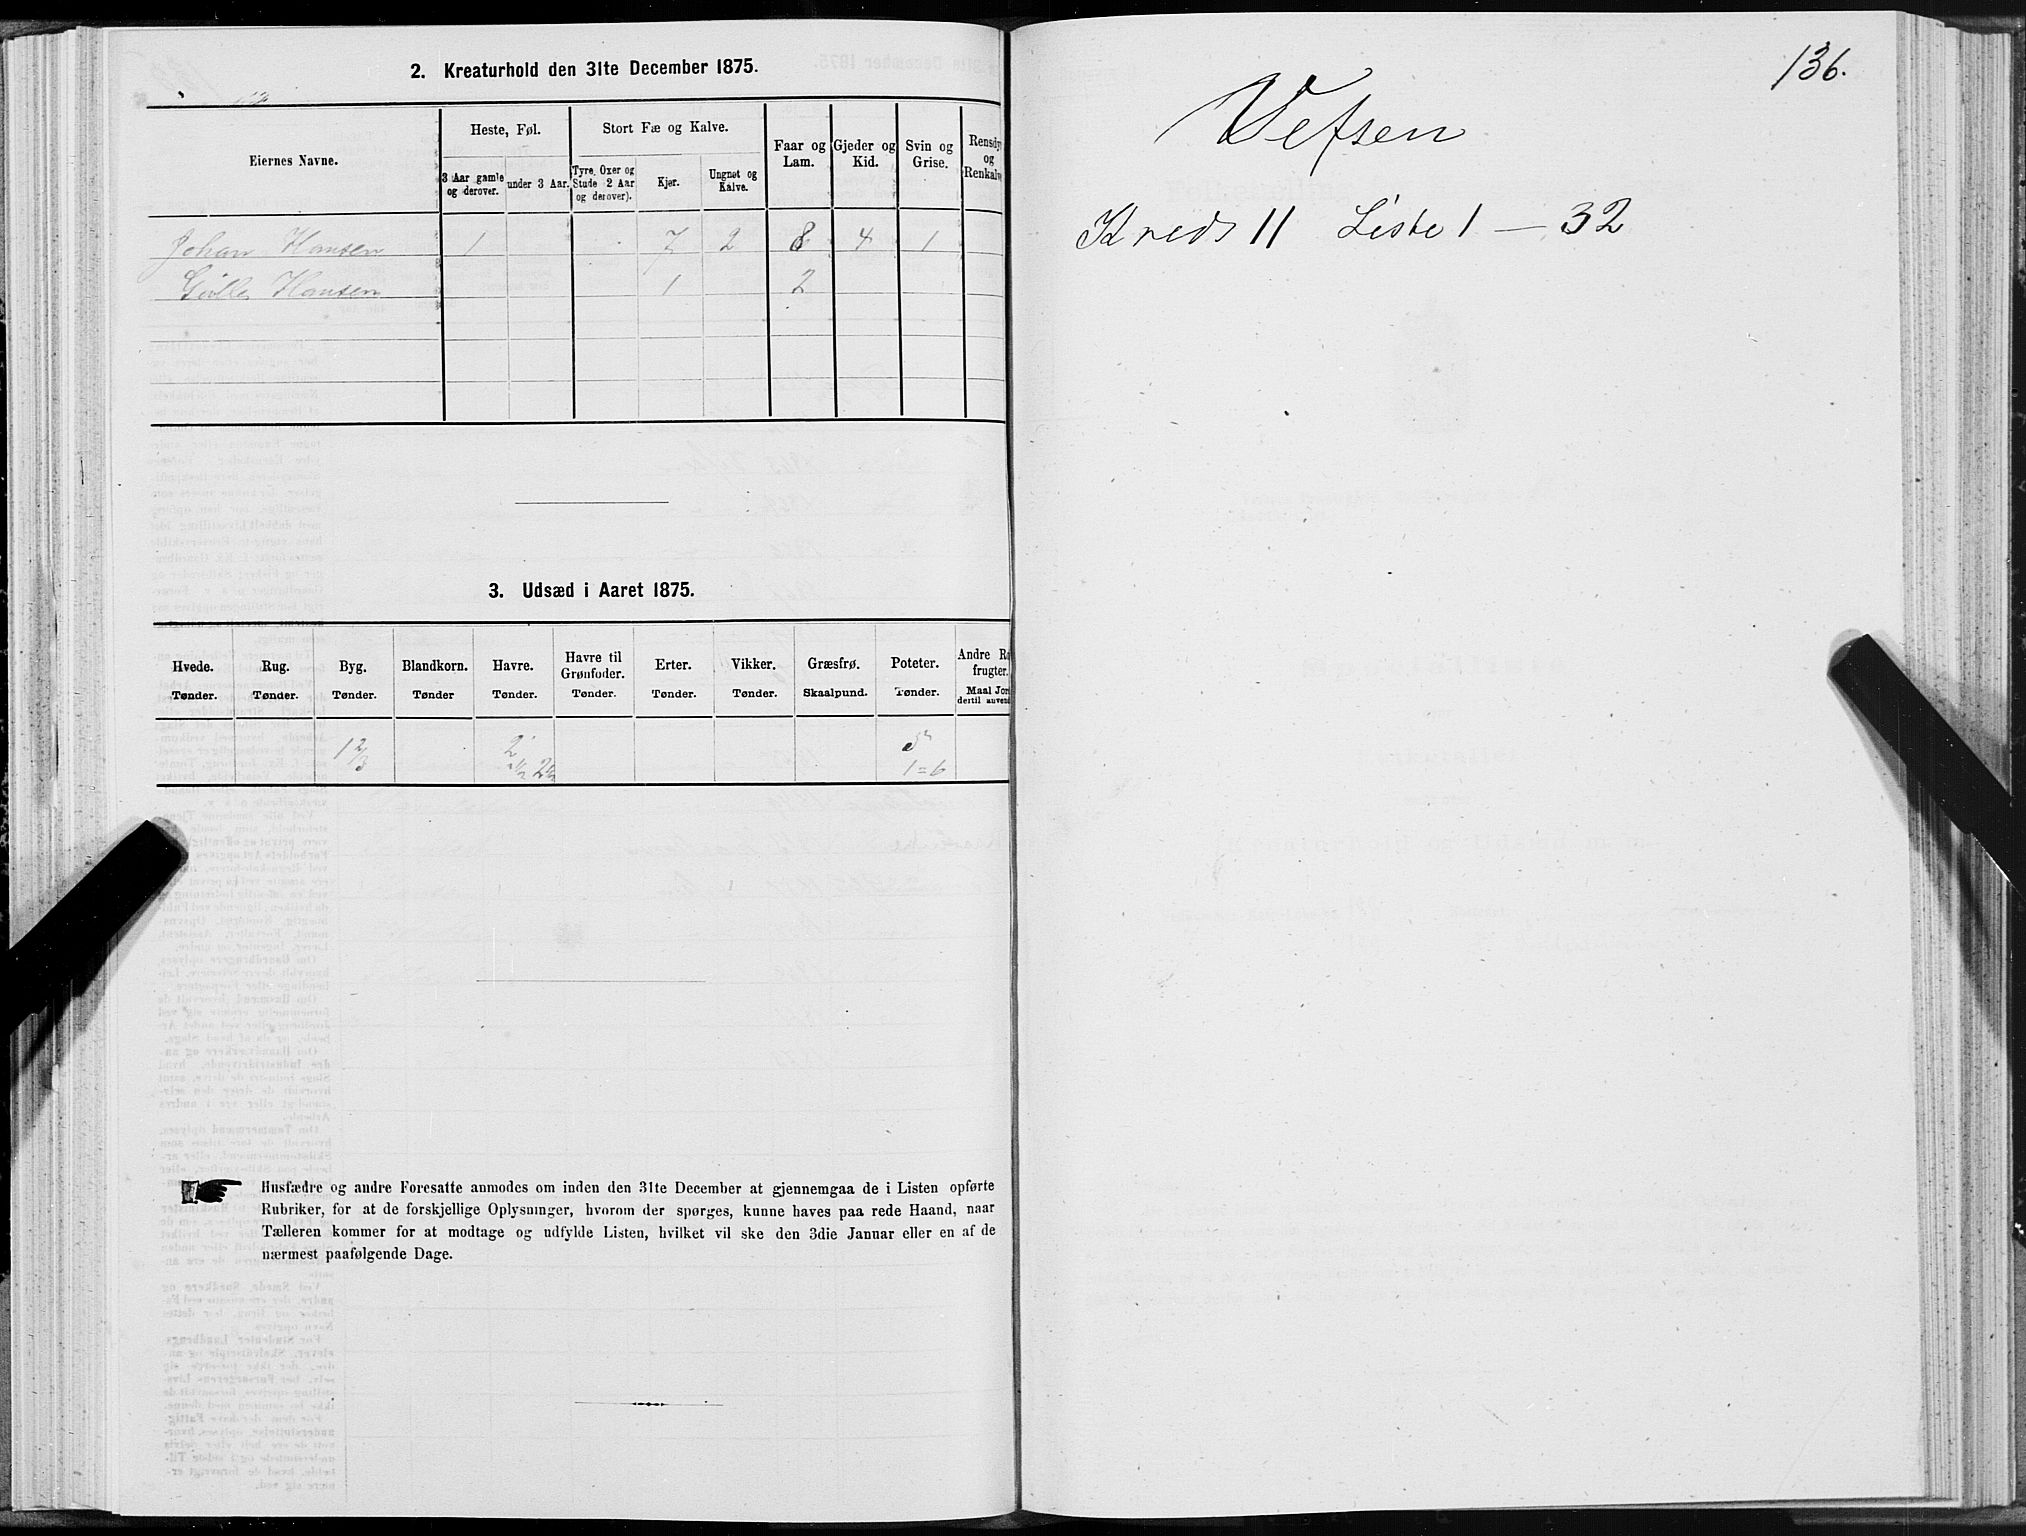 2. Kreaturhold den 31te December 1875.
Eiernes Navne.
Heste, Føl.
3 Aar gamle og derover.
under 3 Aar.
Stort Fæ og Kalve.
Tyre, Oxer og Stude 2 Aar og derover).
Kjer.
Ungnøt og Kalve.
Faar og Lam.
Gjeder og Kid.
Svin og Grise.
Rensdyr og Renkalve
Johan Hansen 1 7 2 8 4 1
Hansen 1 2
3. Udsæd i Aaret 1875.
Hvede. Rug. Byg. Blandkorn. Havre. Havre til Grønfoder. Erter. Vikker. Græsfrø. Poteter. Andre Ro frugter.
Tønder. Tønder. Tønder. Tønder Tønder. Tønder. Tønder. Tønder. Skaalpund. Tønder. Maal Jor dertil anvend
1 2/3 2 5
1/2 2 1/2 1=6
Husfædre og andre Foresatte anmodes om inden den 31te December at gjennemgaa de i Listen opførte
Rubriker, for at de forskjellige Oplysninger, hvorom der spørges, kunne haves paa rede Haand, naar
Tælleren kommer for at modtage og udfylde Listen, hvilket vil ske den 3die Januar eller en af de
nærmest paafølgende Dage.
136.
Vefsen
Kreds 11 Liste 1 — 32